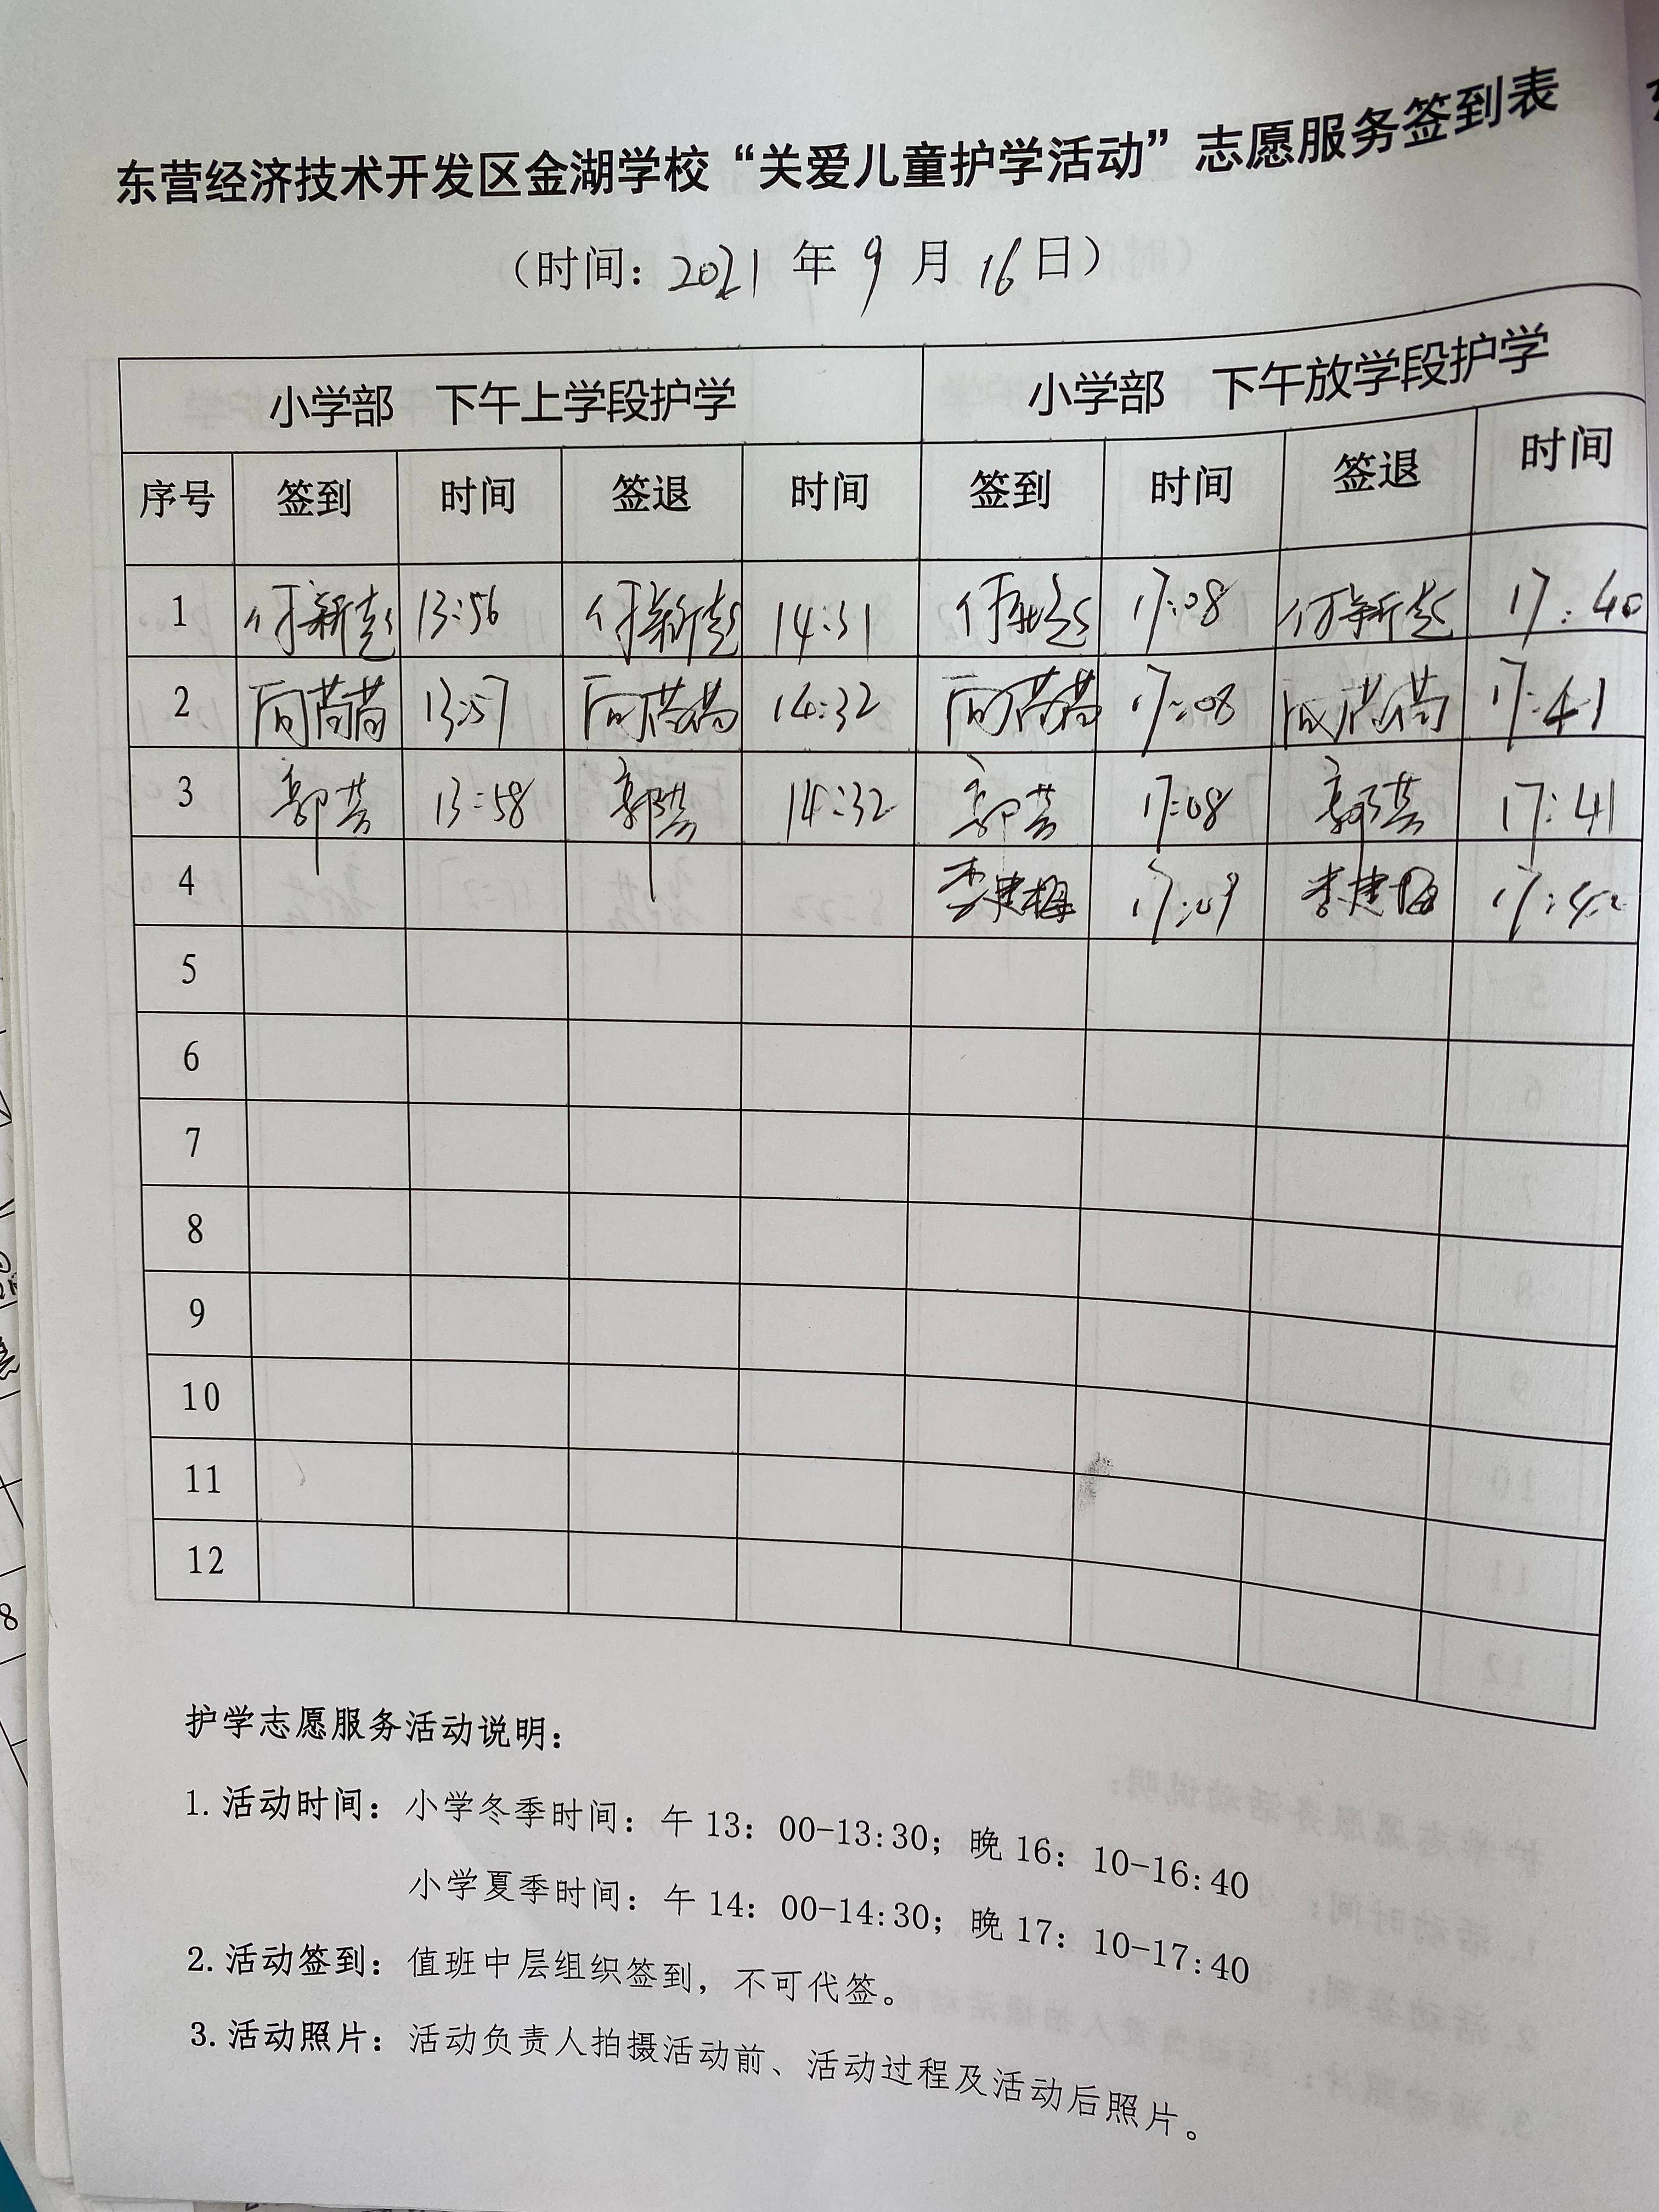 东营经济技术开发区金湖学校“关爱儿童护学活动”志愿服务签到表
（时间：2021年9月16日）
小学部 下午上学段护学 小学部 下午放学段护学
序号 签到 时间 签退 时间 签到 时间 签退 时间
1 13:56 14:31 17:08 17:40
2 13:57 14:32 17:08 17:41
3 郭芸 13:58 郭芸 14:32 郭芸 17:08 郭芸 17:41
4 李建梅 17:09 李建梅 17:42
5
6
7
8
9
10
11
12
护学志愿服务活动说明：
1.活动时间：小学冬季时间：午13：00-13:30；晚16：10-16:40
小学夏季时间：午14：00-14:30；晚17：10-17:40
2.活动签到：值班中层组织签到，不可代签。
3.活动照片：活动负责人拍摄活动前、活动过程及活动后照片。